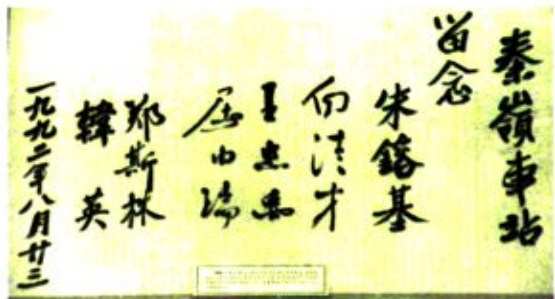 秦嶺車站
留念
朱鎔基
白清才
王忠禹
屠由瑞
郑斯林
韓英
一九九二年八月廿三